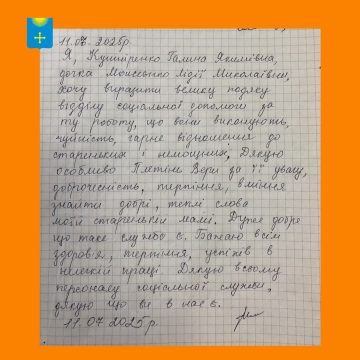 11.07.2025р.
Я, Кушніренко Галина Якимівна,
дочка Мойсеєнко Лідії Миколаївни,
хочу виразити велику подяку
відділу соціальної допомоги за
ту роботу, що вони виконують,
чуйність, гарне відношення до
стареньких і немощних, Дякую
особливо Плетінь Вері за її увагу,
доброчесність, терпіння, вміння
знайти добрі, теплі слова
моїй старенькій мамі. Дуже добре
що така служба є. Бажаю всім
здоров'я, терпіння, успіхів в
нелегкій праці. Дякую всьому
персоналу соціальної служби,
дякую що ви в нас є.
11.07.2025р.